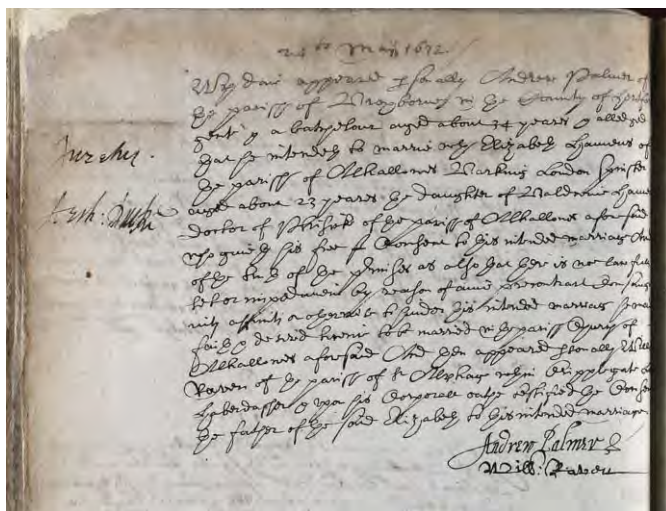 24to May 1672
Which daie appeared psonally Andrew Palmer of
the parish of in the County of
gent & a batchelour aged about 34 years & alledged
that he intendeth to marrie with Elizabeth of
the parish of Alhallowes Barking London Spinster
aged about 23 yeares the daughter of Baldwin
doctor of Phisick of the parish of Alhallowes aforesaid
who giveth his free Consent to this intended marriage And
of the truth of the pmisses as also that there is not lawfull
let or impediment by reason of anie precontract
affinitie or otherwise to hinder this intended marriage
& desired licence to be married in the parish Church of
Alhallowes aforesaid And then appeared psonally Will
Raven of the parish of St Alphage within Cripplegate
haberdasher & upon his Corporall oathe testified the Consent
the father of the said Elizabeth to this intended marriage
Andrew Palmer
Will: Raven